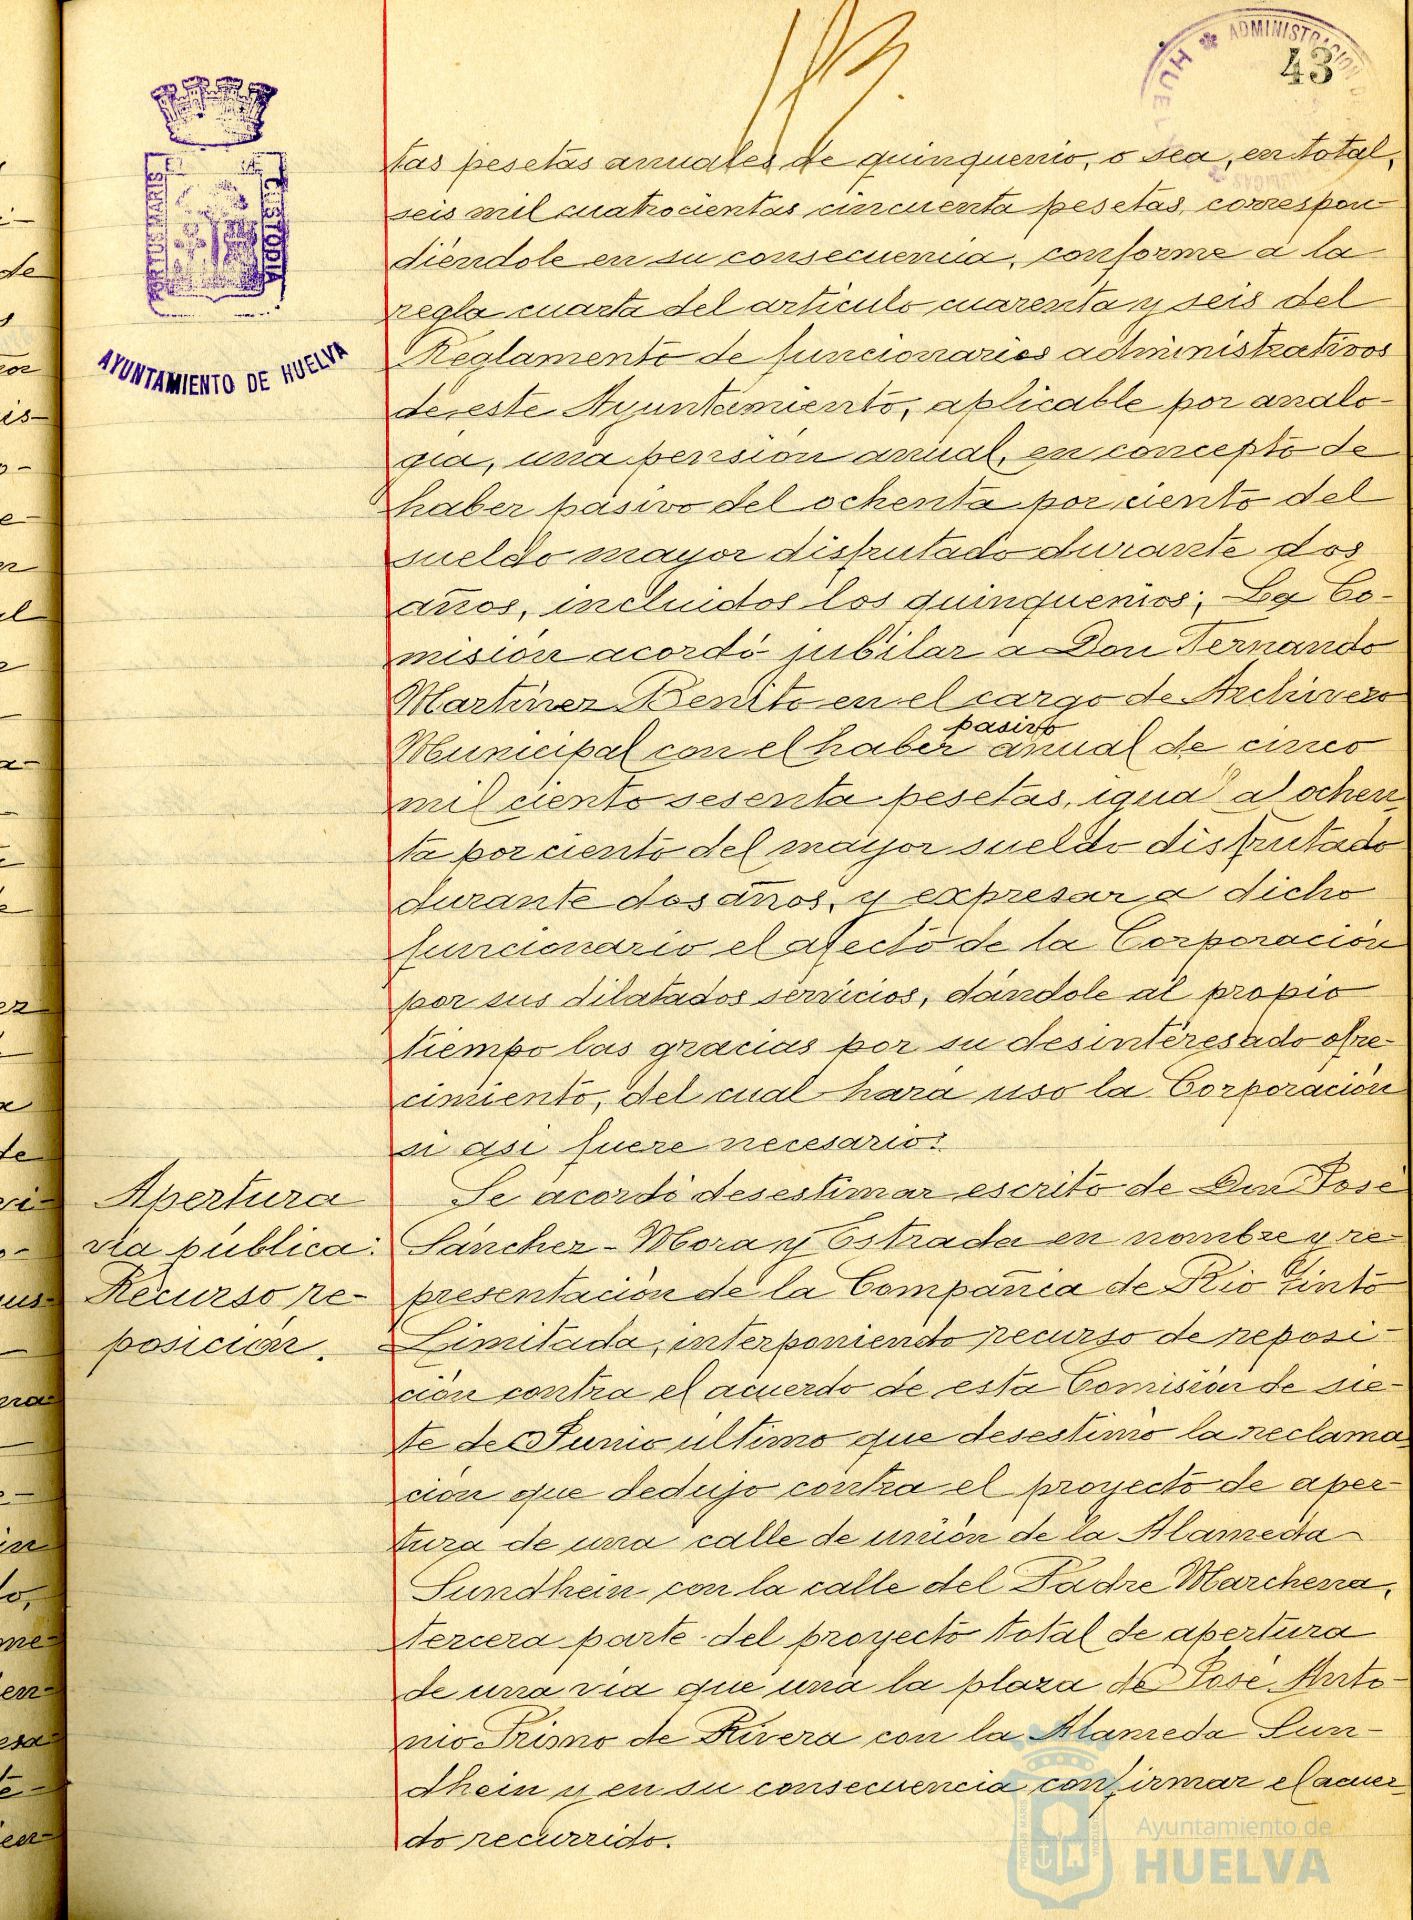 ADMINISTRACION
HUEL
43
PORTUS MARIS ET TERRAE CUSTODIA
AYUNTAMIENTO DE HUELVA
tas pesetas anuales de quinquenio, o sea, en total,
seis mil cuatrocientas cincuenta pesetas, correspon-
diéndole en su consecuencia, conforme a la
regla cuarta del artículo cuarenta y seis del
Reglamento de funcionarios administrativos
de este Ayuntamiento, aplicable por analo-
gía, una pensión anual, en concepto de
haber pasivo del ochenta por ciento del
sueldo mayor disfrutado durante dos
años, incluidos los quinquenios; La Co-
misión acordó jubilar a Don Fernando
Martínez Benito en el cargo de Archivero
Municipal con el haber pasivo anual de cinco
mil ciento sesenta pesetas, igual al ochen-
ta por ciento del mayor sueldo disfrutado
durante dos años, y expresar a dicho
funcionario el afecto de la Corporación
por sus dilatados servicios, dándole al propio
tiempo las gracias por su desinterésado ofre-
cimiento, del cual hará uso la Corporación
si así fuere necesario.
Apertura
vía pública:
Recurso re-
posición.
Se acordó desestimar escrito de Don José
Sánchez-Mora y Estrada en nombre y re-
presentación de la Compañía de Rio Tinto
Limitada, interponiendo recurso de reposi-
ción contra el acuerdo de esta Comisión de sie-
te de Junio último que desestimó la reclama-
ción que dedujo contra el proyecto de aper-
tura de una calle de unión de la Alameda
Sundhein con la calle del Padre Marchena,
tercera parte del proyecto total de apertura
de una vía que una la plaza de José Anto-
nio Primo de Rivera con la Alameda Sun-
dhein y en su consecuencia confirmar el acuer-
do recurrido.
Ayuntamiento de
HUELVA